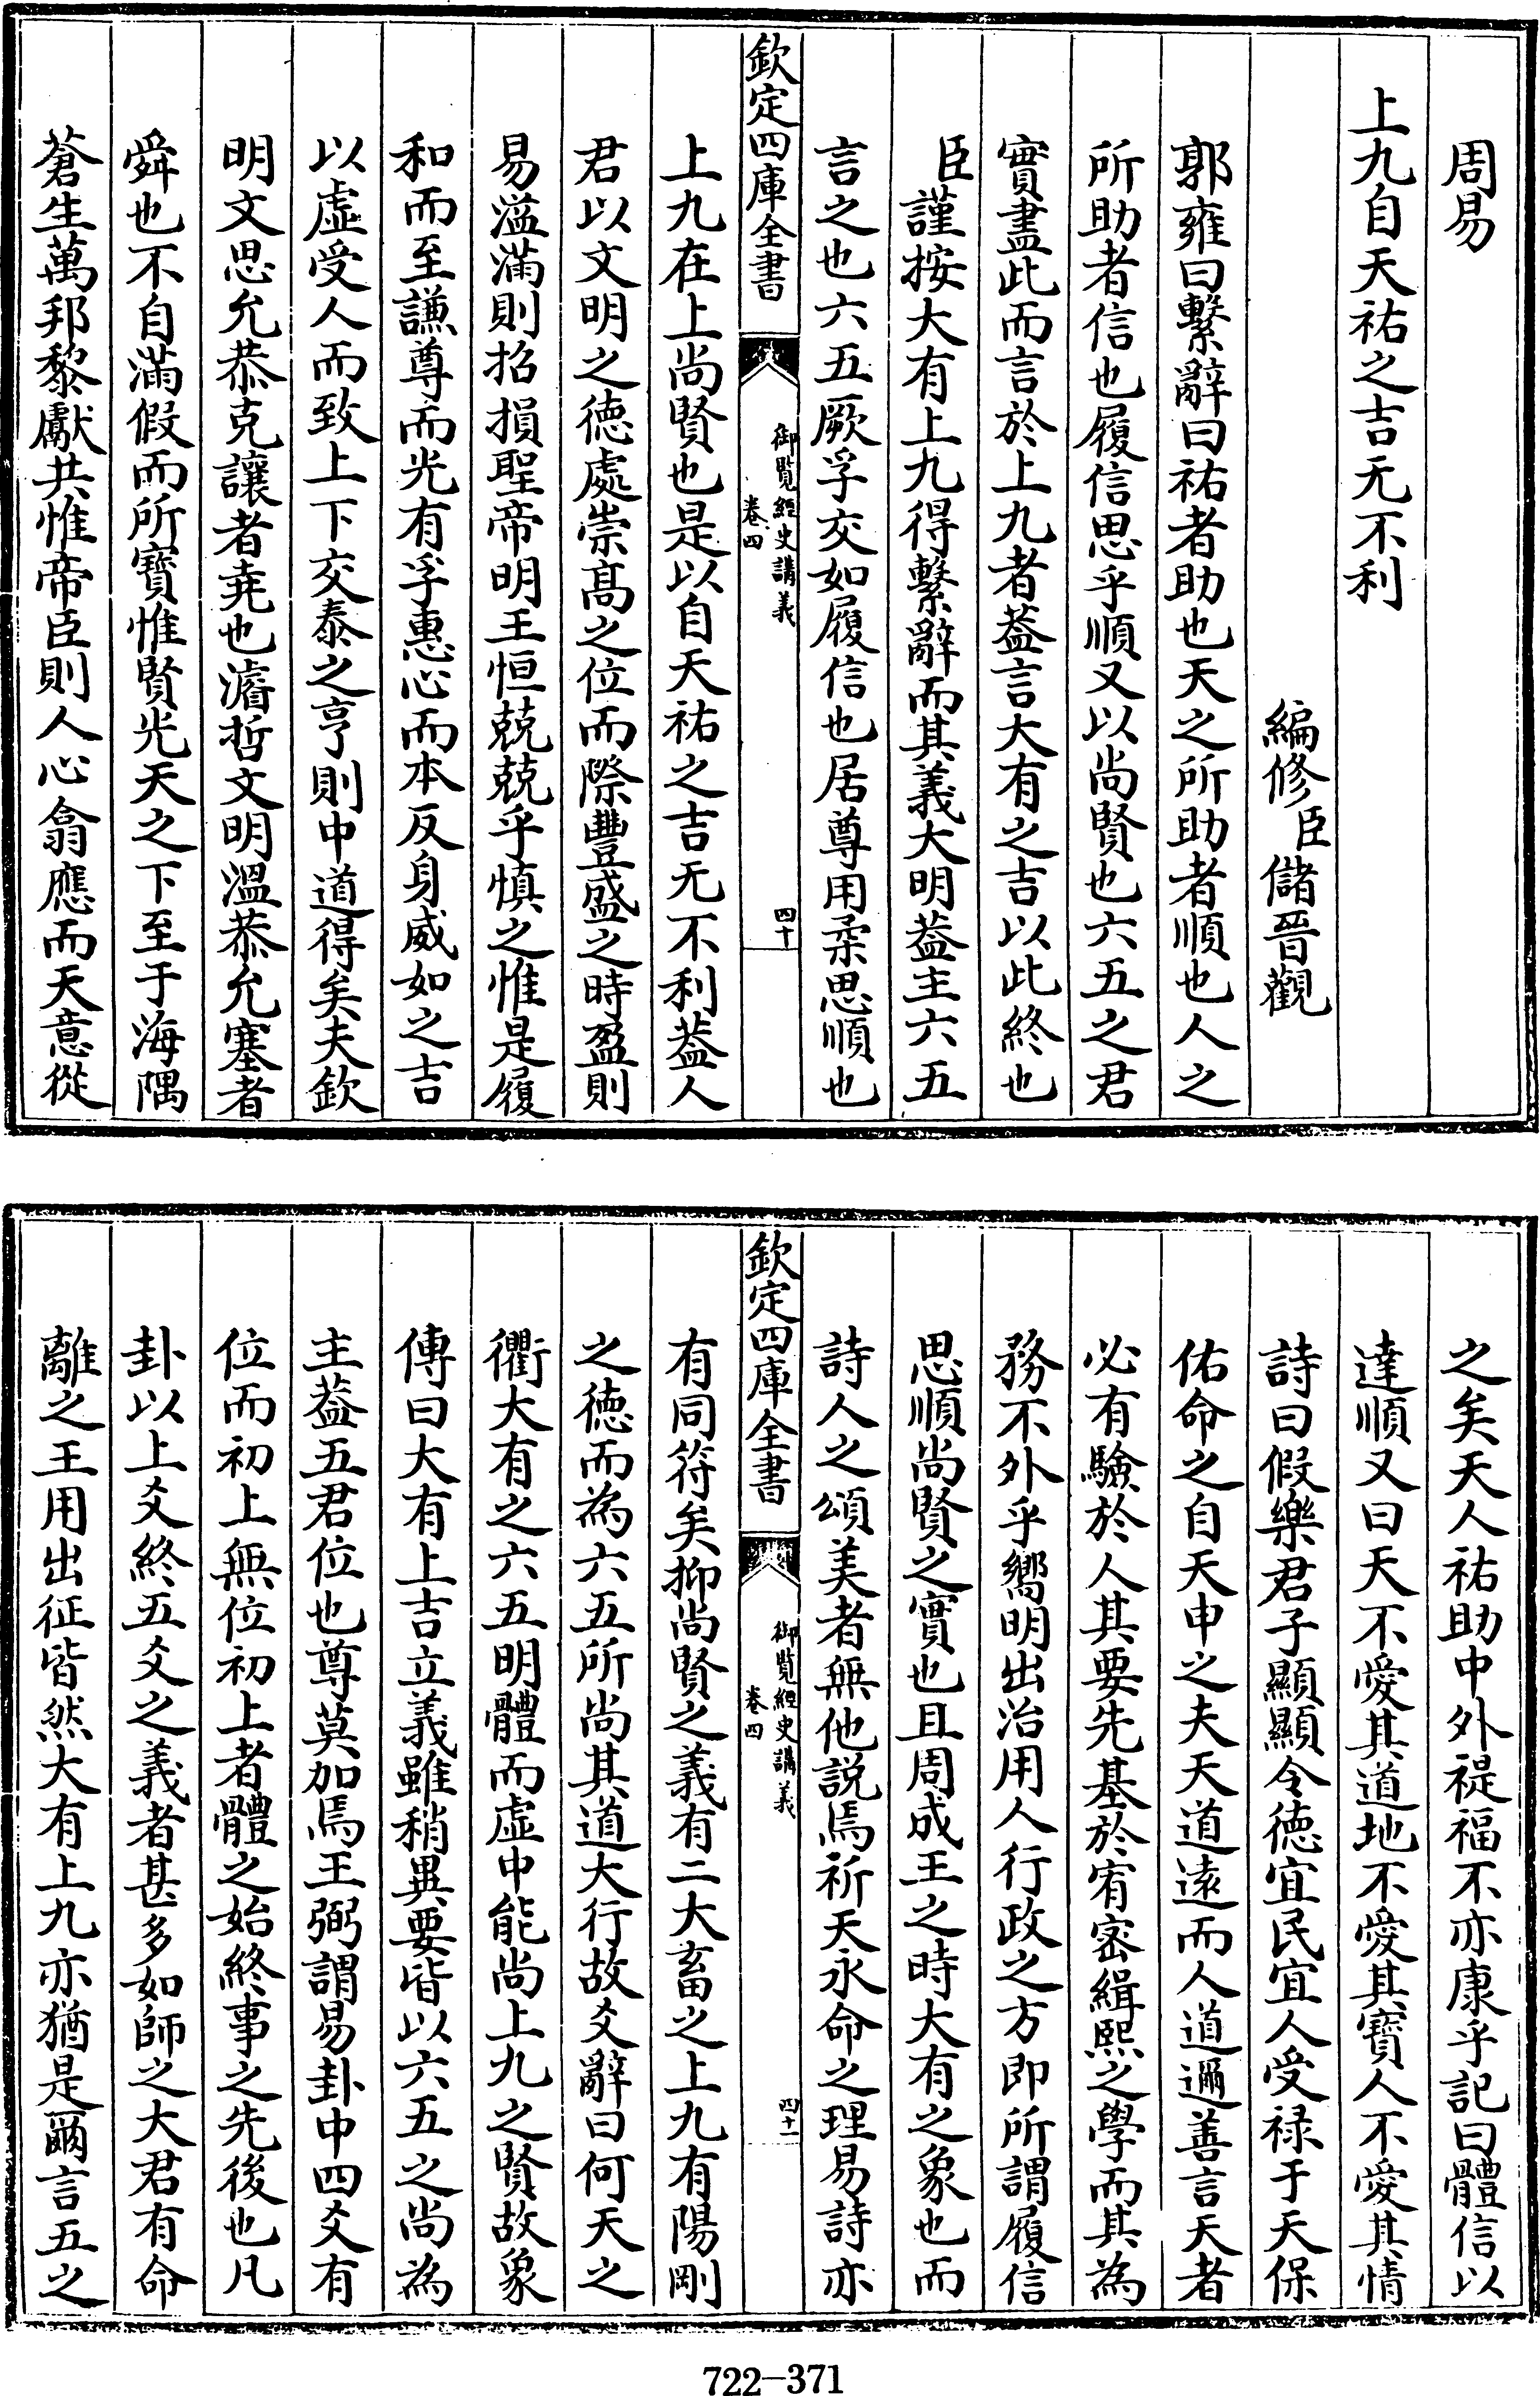 周易
上九自天祐之吉无不利
編修臣儲晉觀
郭雍曰繫辭曰祐者助也天之所助者順也人之
所助者信也履信思乎順又以尚賢也六五之君
實盡此而言於上九者葢言大有之吉以此終也
臣謹按大有上九得繫辭而其義大明葢主六五
言之也六五厥孚交如履信也居尊用柔思順也
欽定四庫全書
御覽經史講義
卷四
四十
上九在上尚賢也是以自天祐之吉无不利葢人
君以文明之徳處崇髙之位而際豐盛之時盈則
易溢滿則招損聖帝明王恒兢兢乎慎之惟是履
和而至謙尊而光有孚惠心而本反身威如之吉
以虛受人而致上下交泰之亨則中道得矣夫欽
明文思允恭克讓者堯也濬哲文明溫恭允塞者
舜也不自滿假而所寶惟賢光天之下至于海隅
蒼生萬邦黎獻共惟帝臣則人心翕應而天意從
之矣天人祐助中外禔福不亦康乎記曰體信以
達順又曰天不愛其道地不愛其寶人不愛其情
詩曰假樂君子顯顯令徳宜民宜人受禄于天保
佑命之自天申之夫天道遠而人道邇善言天者
必有驗於人其要先基於宥密緝熙之學而其為
務不外乎嚮明出治用人行政之方即所謂履信
思順尚賢之實也且周成王之時大有之象也而
詩人之頌美者無他說焉祈天永命之理易詩亦
欽定四庫全書
御覽經史講義
卷四
四十一
有同符矣抑尚賢之義有二大畜之上九有陽剛
之徳而為六五所尚其道大行故爻辭曰何天之
衢大有之六五明體而虛中能尚上九之賢故象
傳曰大有上吉立義雖稍異要皆以六五之尚為
主葢五君位也尊莫加焉王弼謂易卦中四爻有
位而初上無位初上者體之始終事之先後也凡
卦以上爻終五爻之義者甚多如師之大君有命
離之王用出征皆然大有上九亦猶是爾言五之
722-371